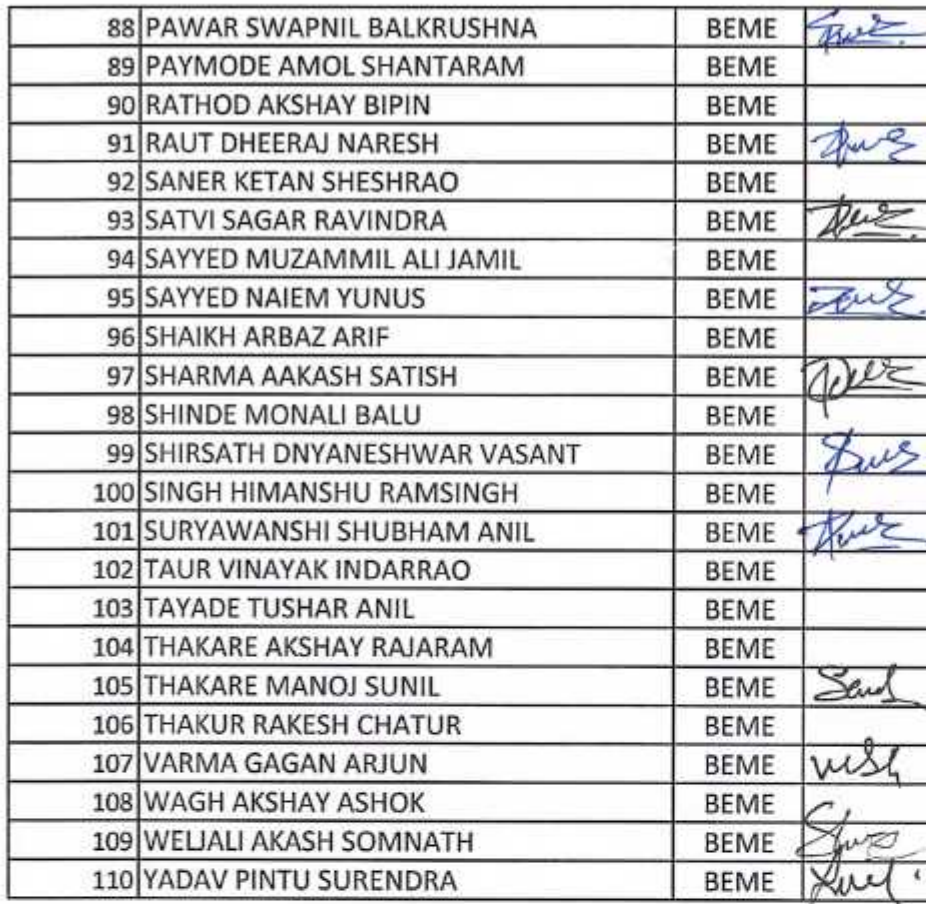 88 PAWAR SWAPNIL BALKRUSHNA BEME
89 PAYMODE AMOL SHANTARAM BEME
90 RATHOD AKSHAY BIPIN BEME
91 RAUT DHEERAJ NARESH BEME
92 SANER KETAN SHESHRAO BEME
93 SATVI SAGAR RAVINDRA BEME
94 SAYYED MUZAMMIL ALI JAMIL BEME
95 SAYYED NAIEM YUNUS BEME
96 SHAIKH ARBAZ ARIF BEME
97 SHARMA AAKASH SATISH BEME
98 SHINDE MONALI BALU BEME
99 SHIRSATH DNYANESHWAR VASANT BEME
100 SINGH HIMANSHU RAMSINGH BEME
101 SURYAWANSHI SHUBHAM ANIL BEME
102 TAUR VINAYAK INDARRAO BEME
103 TAYADE TUSHAR ANIL BEME
104 THAKARE AKSHAY RAJARAM BEME
105 THAKARE MANOJ SUNIL BEME
106 THAKUR RAKESH CHATUR BEME
107 VARMA GAGAN ARJUN BEME
108 WAGH AKSHAY ASHOK BEME
109 WELJALI AKASH SOMNATH BEME
110 YADAV PINTU SURENDRA BEME